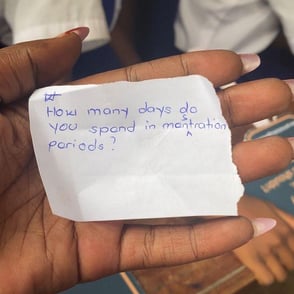 How many days do
you spend in menstration
periods?